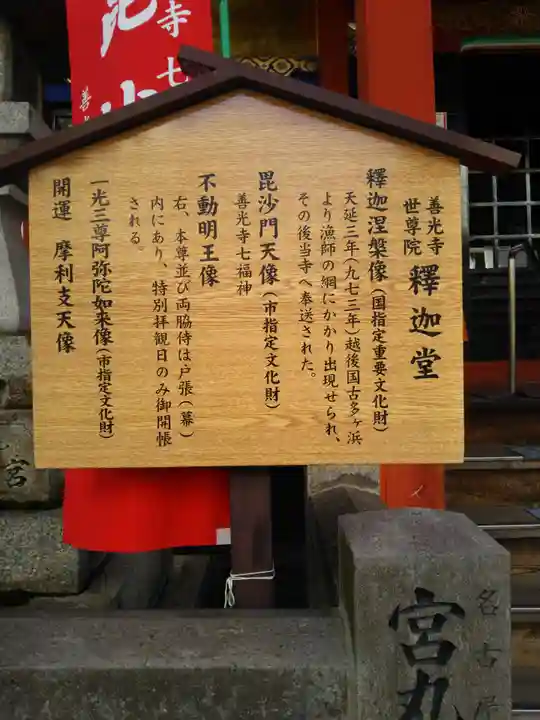 善光寺
世尊院
釋迦堂
釋迦涅槃像(国指定重要文化財)
天延三年(九七三年)越後国古多ヶ浜
より漁師の網にかかり出現せられ、
その後当寺へ奉送された。
毘沙門天像(市指定文化財)
善光寺七福神
不動明王像
右、本尊並び両脇侍は戸張(幕)
内にあり、特別拝観日のみ御開帳
される。
一光三尊阿弥陀如来像(市指定文化財)
開運 摩利支天像
寺七
善
宮
名古屋
宮丸